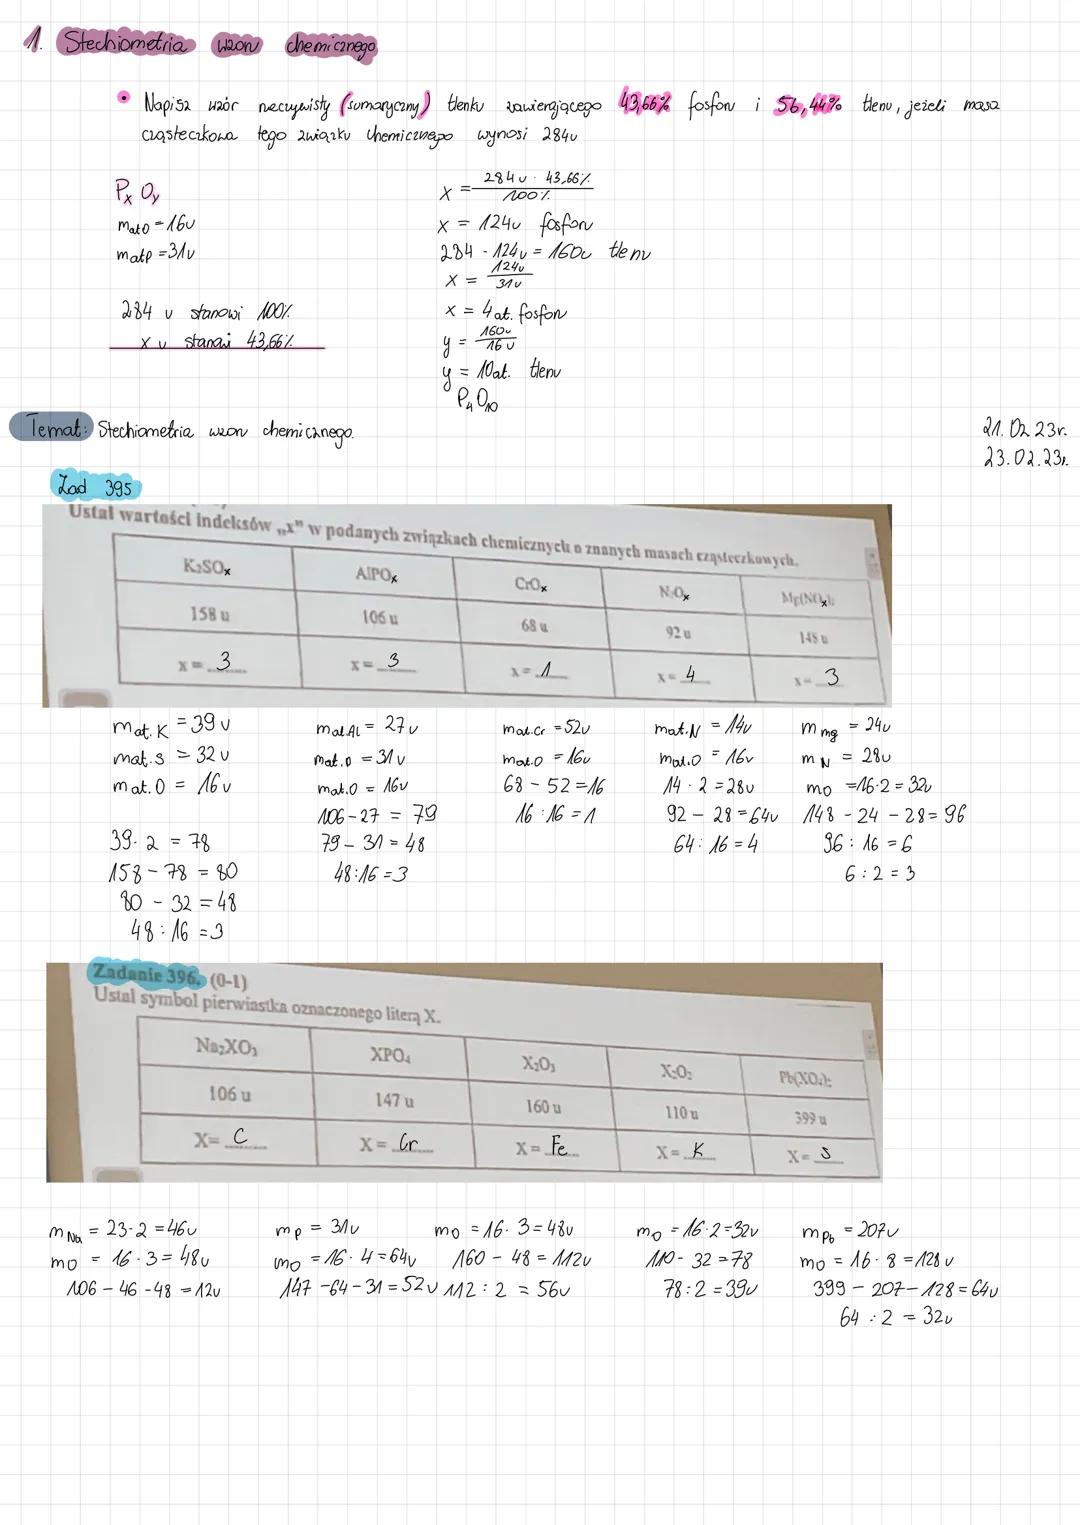 1. Stechiometria wzoru chemicznego
• Napisz wzór rzeczywisty (sumaryczny) tlenku zawierającego 43,66% fosforu i 56,44% tlenu, jeżeli masa
cząsteczkowa tego związku chemicznego wynosi 284u
PxOy
matO = 16u
matP = 31u
284 u stanowi 100%
x u stanowi 43,66%
x = 284u · 43,66% / 100%
x = 124u fosforu
284 - 124u = 160u tlenu
x = 124u / 31u
x = 4 at. fosforu
y = 160u / 16u
y = 10at. tlenu
P4O10
Temat: Stechiometria wzoru chemicznego.
21.02.23r.
23.02.23r.
Zad 395
Ustal wartości indeksów „x" w podanych związkach chemicznych o znanych masach cząsteczkowych.
K₂SOx AlPOx CrOx N₂Ox Mg(NOx)₂
158 u 106 u 68 u 92 u 148 u
x = 3 x = 3 x = 1 x = 4 x = 3
mat.K = 39u
mat.S = 32u
mat.O = 16u
39·2 = 78
158 - 78 = 80
80 - 32 = 48
48 : 16 = 3
mat.Al = 27u
mat.P = 31u
mat.O = 16u
106 - 27 = 79
79 - 31 = 48
48:16 = 3
mat.Cr = 52u
mat.O = 16u
68 - 52 = 16
16 : 16 = 1
mat.N = 14u
mat.O = 16u
14 · 2 = 28u
92 - 28 = 64u
64 : 16 = 4
m mg = 24u
m N = 28u
mO = 16·2 = 32u
148 - 24 - 28 = 96
96 : 16 = 6
6 : 2 = 3
Zadanie 396. (0-1)
Ustal symbol pierwiastka oznaczonego literą X.
Na₂XO₃ XPO₄ X₂O₃ X₂O₂ Pb(XO₄)₂
106 u 147 u 160 u 110 u 399 u
X= C X = Cr X = Fe X = K X = S
m Na = 23·2 = 46u
mO = 16·3 = 48u
106 - 46 - 48 = 12u
mP = 31u
mO = 16·4 = 64u
147 - 64 - 31 = 52u
mO = 16·3 = 48u
160 - 48 = 112u
112 : 2 = 56u
mO = 16·2 = 32u
110 - 32 = 78
78 : 2 = 39u
mPb = 207u
mO = 16·8 = 128u
399 - 207 - 128 = 64u
64 : 2 = 32u